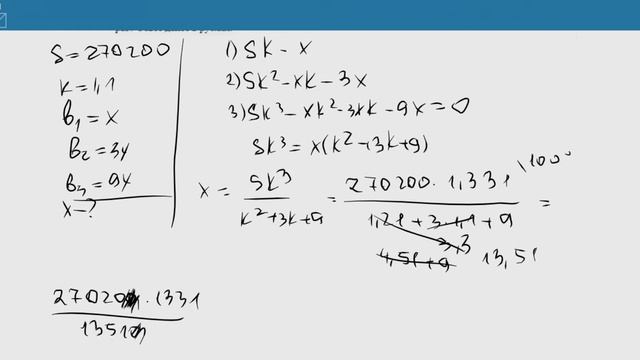 S = 270200
k = 1,1
b₁ = x
b₂ = 3x
b₃ = 9x
x - ?
1) Sk - x
2) Sk² - xk - 3x
3) Sk³ - xk² - 3xk - 9x = 0
Sk³ = x(k² + 3k + 9)
x = Sk³ / (k² + 3k + 9) = 270200 · 1,331 / (1,21 + 3·1,1 + 9) =
\1000
3,3
4,51 + 9 13,51
27020 · 1331 / 1351